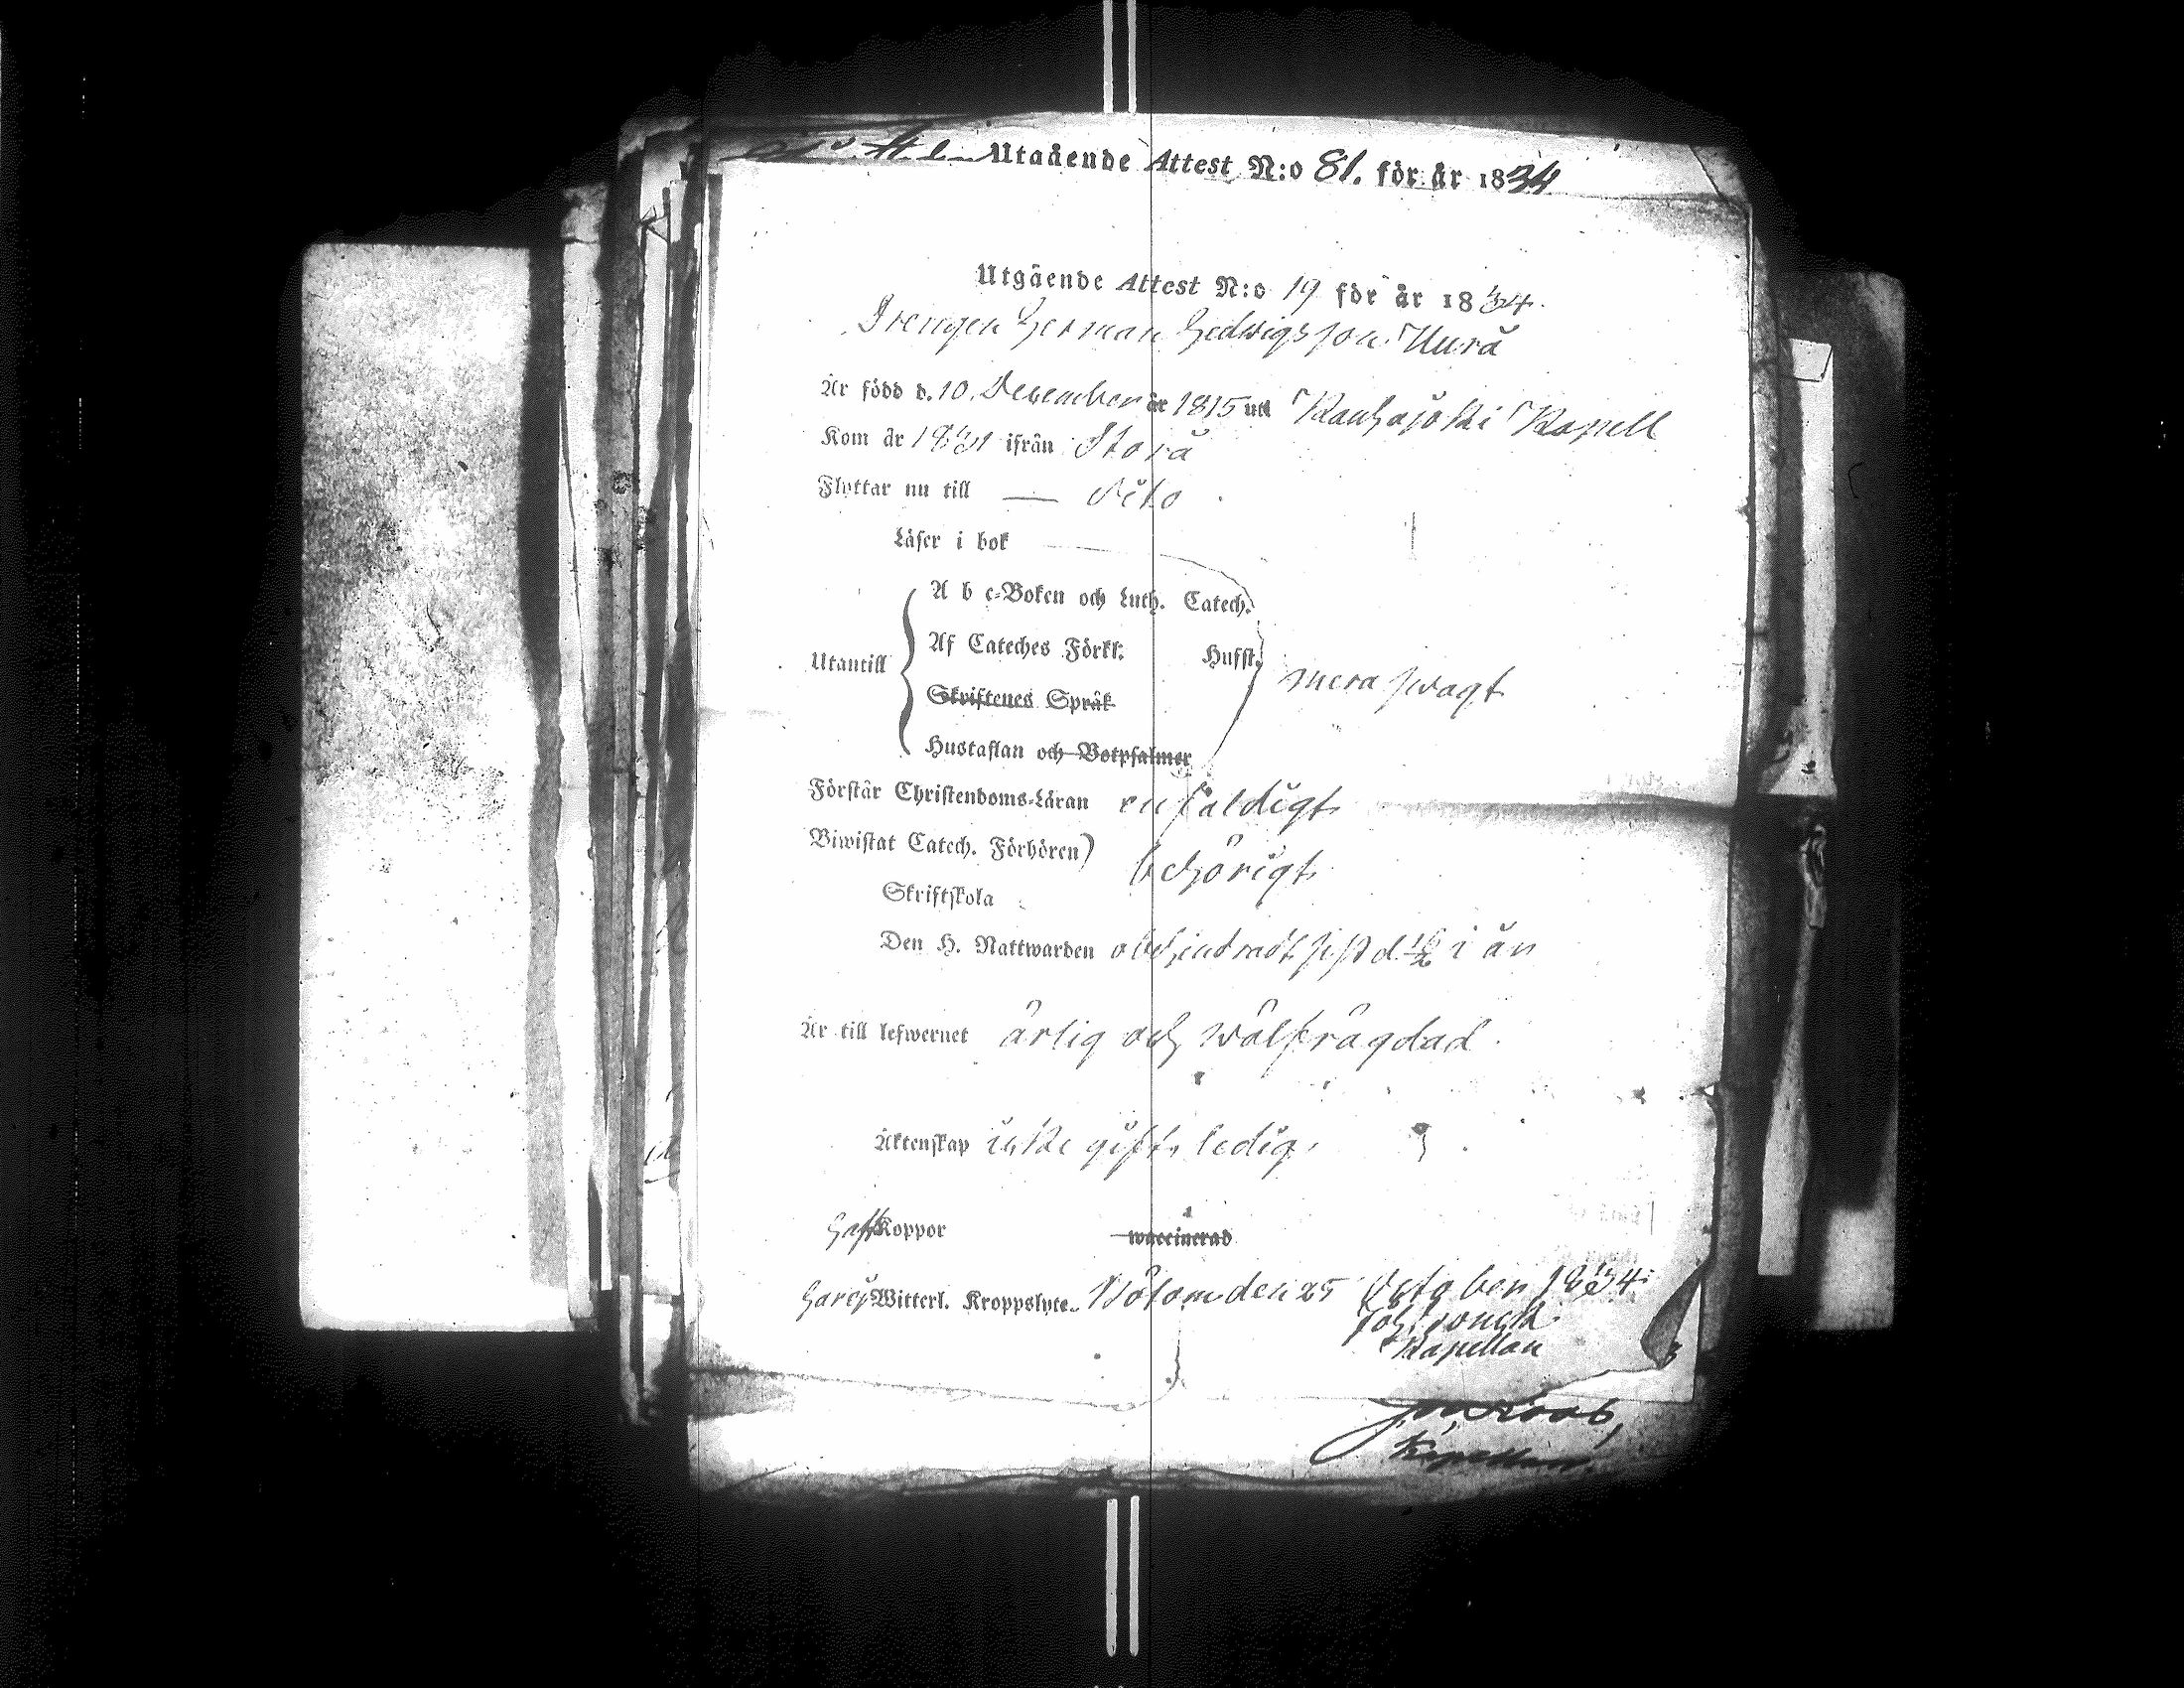 Utgående Attest N:o 81. för år 1834
Utgående Attest N:o 19 för år 1834.
Drengen Herman Hedwigsson Kurå
Är född d. 10. December år 1815 uti Kauhajoki Kapell
Kom år 1831 ifrån Storå
Flyttar nu till — dito.
Läser i bok
A b c-Boken och Luth. Catech.
Af Cateches Förkl. Husst.
Utantill mera swagt
Skriftenes Språk
Hustaflan och Botpsalmer
Förstår Christendoms-Läran enfaldigt
Biwistat Catech. Förhören)
behörigt
Skriftskola
Den H. Nattwarden obehindradt sist d. i år
Är till lefwernet ärlig och wälfrägdad.
Äktenskap icke gift, ledig.
Haft Koppor waccinerad
Witterl. Kroppslyte. Bötom den 25 October 1834.
Kapellan
Kapellan.